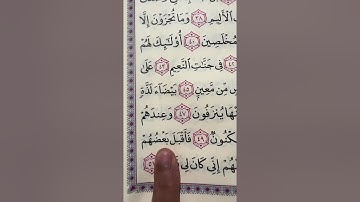 الْأَلِيمِ ﴿٣٨﴾ وَمَا تُجْزَوْنَ إِلَّا
الْمُخْلَصِينَ ﴿٤٠﴾ أُوْلَٰئِكَ لَهُمْ
﴿٤٢﴾ فِي جَنَّاتِ النَّعِيمِ ﴿٤٣﴾ عَلَىٰ
سٍ مِّن مَّعِينٍ ﴿٤٥﴾ بَيْضَاءَ لَذَّةٍ
عَنْهَا يُنزَفُونَ ﴿٤٧﴾ وَعِندَهُمْ
مَّكْنُونٌ ﴿٤٩﴾ فَأَقْبَلَ بَعْضُهُمْ
مِّنْهُمْ إِنِّي كَانَ لِي